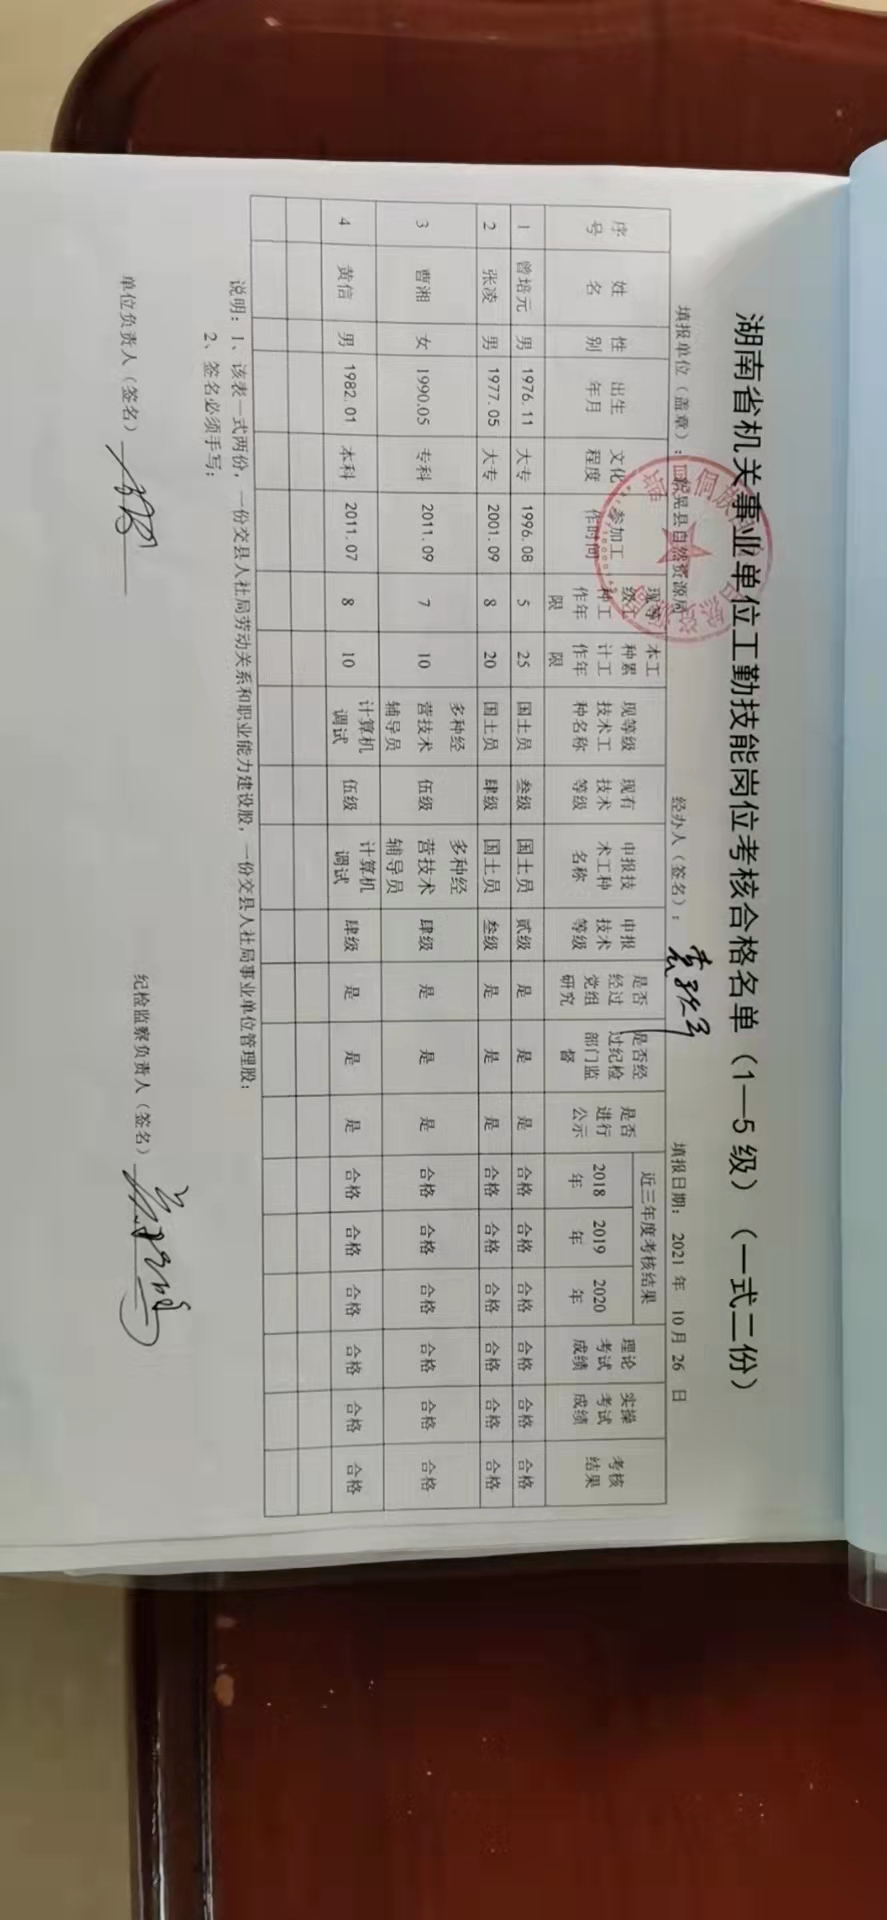 湖南省机关事业单位工勤技能岗位考核合格名单（1—5 级）（一式二份）
填报单位（盖章）：新晃县自然资源局 经办人（签名）： 填报日期： 2021 年 10 月 26 日
序号 姓名 性别 出生年月 文化程度 参加工作时间 现等级工种工作年限 本工种累计工作年限 现等级技术工种名称 现有技术等级 申报技术工种名称 申报技术等级 是否经过党组研究 是否经过纪检部门监督 是否进行公示 近三年度考核结果 2018年 2019年 2020年 理论考试成绩 实操考试成绩 考核结果
1 曾培元 男 1976.11 大专 1996.08 5 25 国土员 叁级 国土员 贰级 是 是 是 合格 合格 合格 合格 合格 合格
2 张凌 男 1977.05 大专 2001.09 8 20 国土员 肆级 国土员 叁级 是 是 是 合格 合格 合格 合格 合格 合格
3 曹湘 女 1990.05 专科 2011.09 7 10 多种经营技术辅导员 伍级 多种经营技术辅导员 肆级 是 是 是 合格 合格 合格 合格 合格 合格
4 黄信 男 1982.01 本科 2011.07 8 10 计算机调试 伍级 计算机调试 肆级 是 是 是 合格 合格 合格 合格 合格 合格
说明：1、该表一式两份，一份交县人社局劳动关系和职业能力建设股，一份交县人社局事业单位管理股；
2、签名必须手写；
单位负责人（签名） 纪检监察负责人（签名）